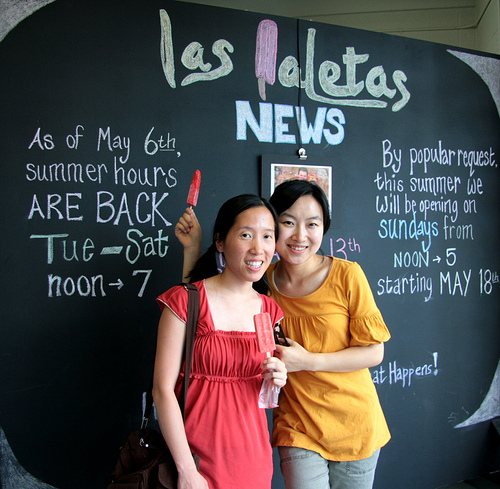 las Paletas
NEWS
As of May 6th,
summer hours
ARE BACK
Tue-Sat
noon → 7
By popular request,
this summer we
will be opening on
sundays from
NOON → 5
starting MAY 18th
13th
at Happens!